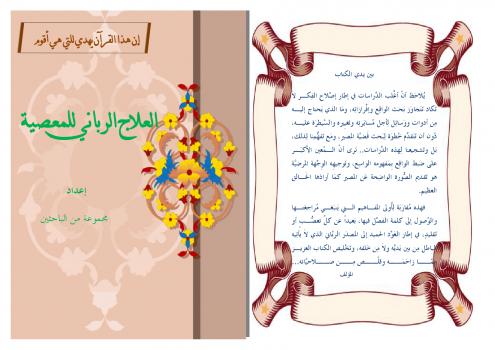 إن هذا القرآن يهدي للتي هي أقوم
العلاج الرباني للمعصية
إعداد
مجموعة من الباحثين
بين يدي الكتاب
يُلاحظ أنّ أغلب الدّراسات في إطار إصلاح الفكر لا
تكاد تتجاوز بحث الواقع وإفرازاته، وما الذي يحتاج إليه
من أدوات ووسائل لأجل مُسايرته وتغييره والسّيطرة عليه،
دُون أن تتقدَّم خُطوَة لبحث قضيَّة المصير. ومع تفهُّمنا لذلك،
بل وتشجيعنا لهذه الدِّراسات.. نرى أنَّ المُعين الأكبر
على ضبط الواقع بمفهومه الواسع، وتوجيهه الوِجْهة المرضيَّة
هو تقديم الصُّورة الواضحة عن المصير كما أرادَها الخالق
العظيم.
فهذه مُقاربَة لأُولى المفاهيم التي ينبغي مُراجعتها
والوُصول إلى كلمة الفصْل فيها، بعيدًا عن كلّ تعصُّب أو
تقليدٍ، في إطار العَوْد الحميد إلى المصدر الربّاني الذي لا يأتيه
الباطل مِن بين يَديْه ولا من خلفه، وتخليص الكتاب العزيز
ممّا زاحَمَه وقلَّص مِن صلاحيّاته..
المؤلف